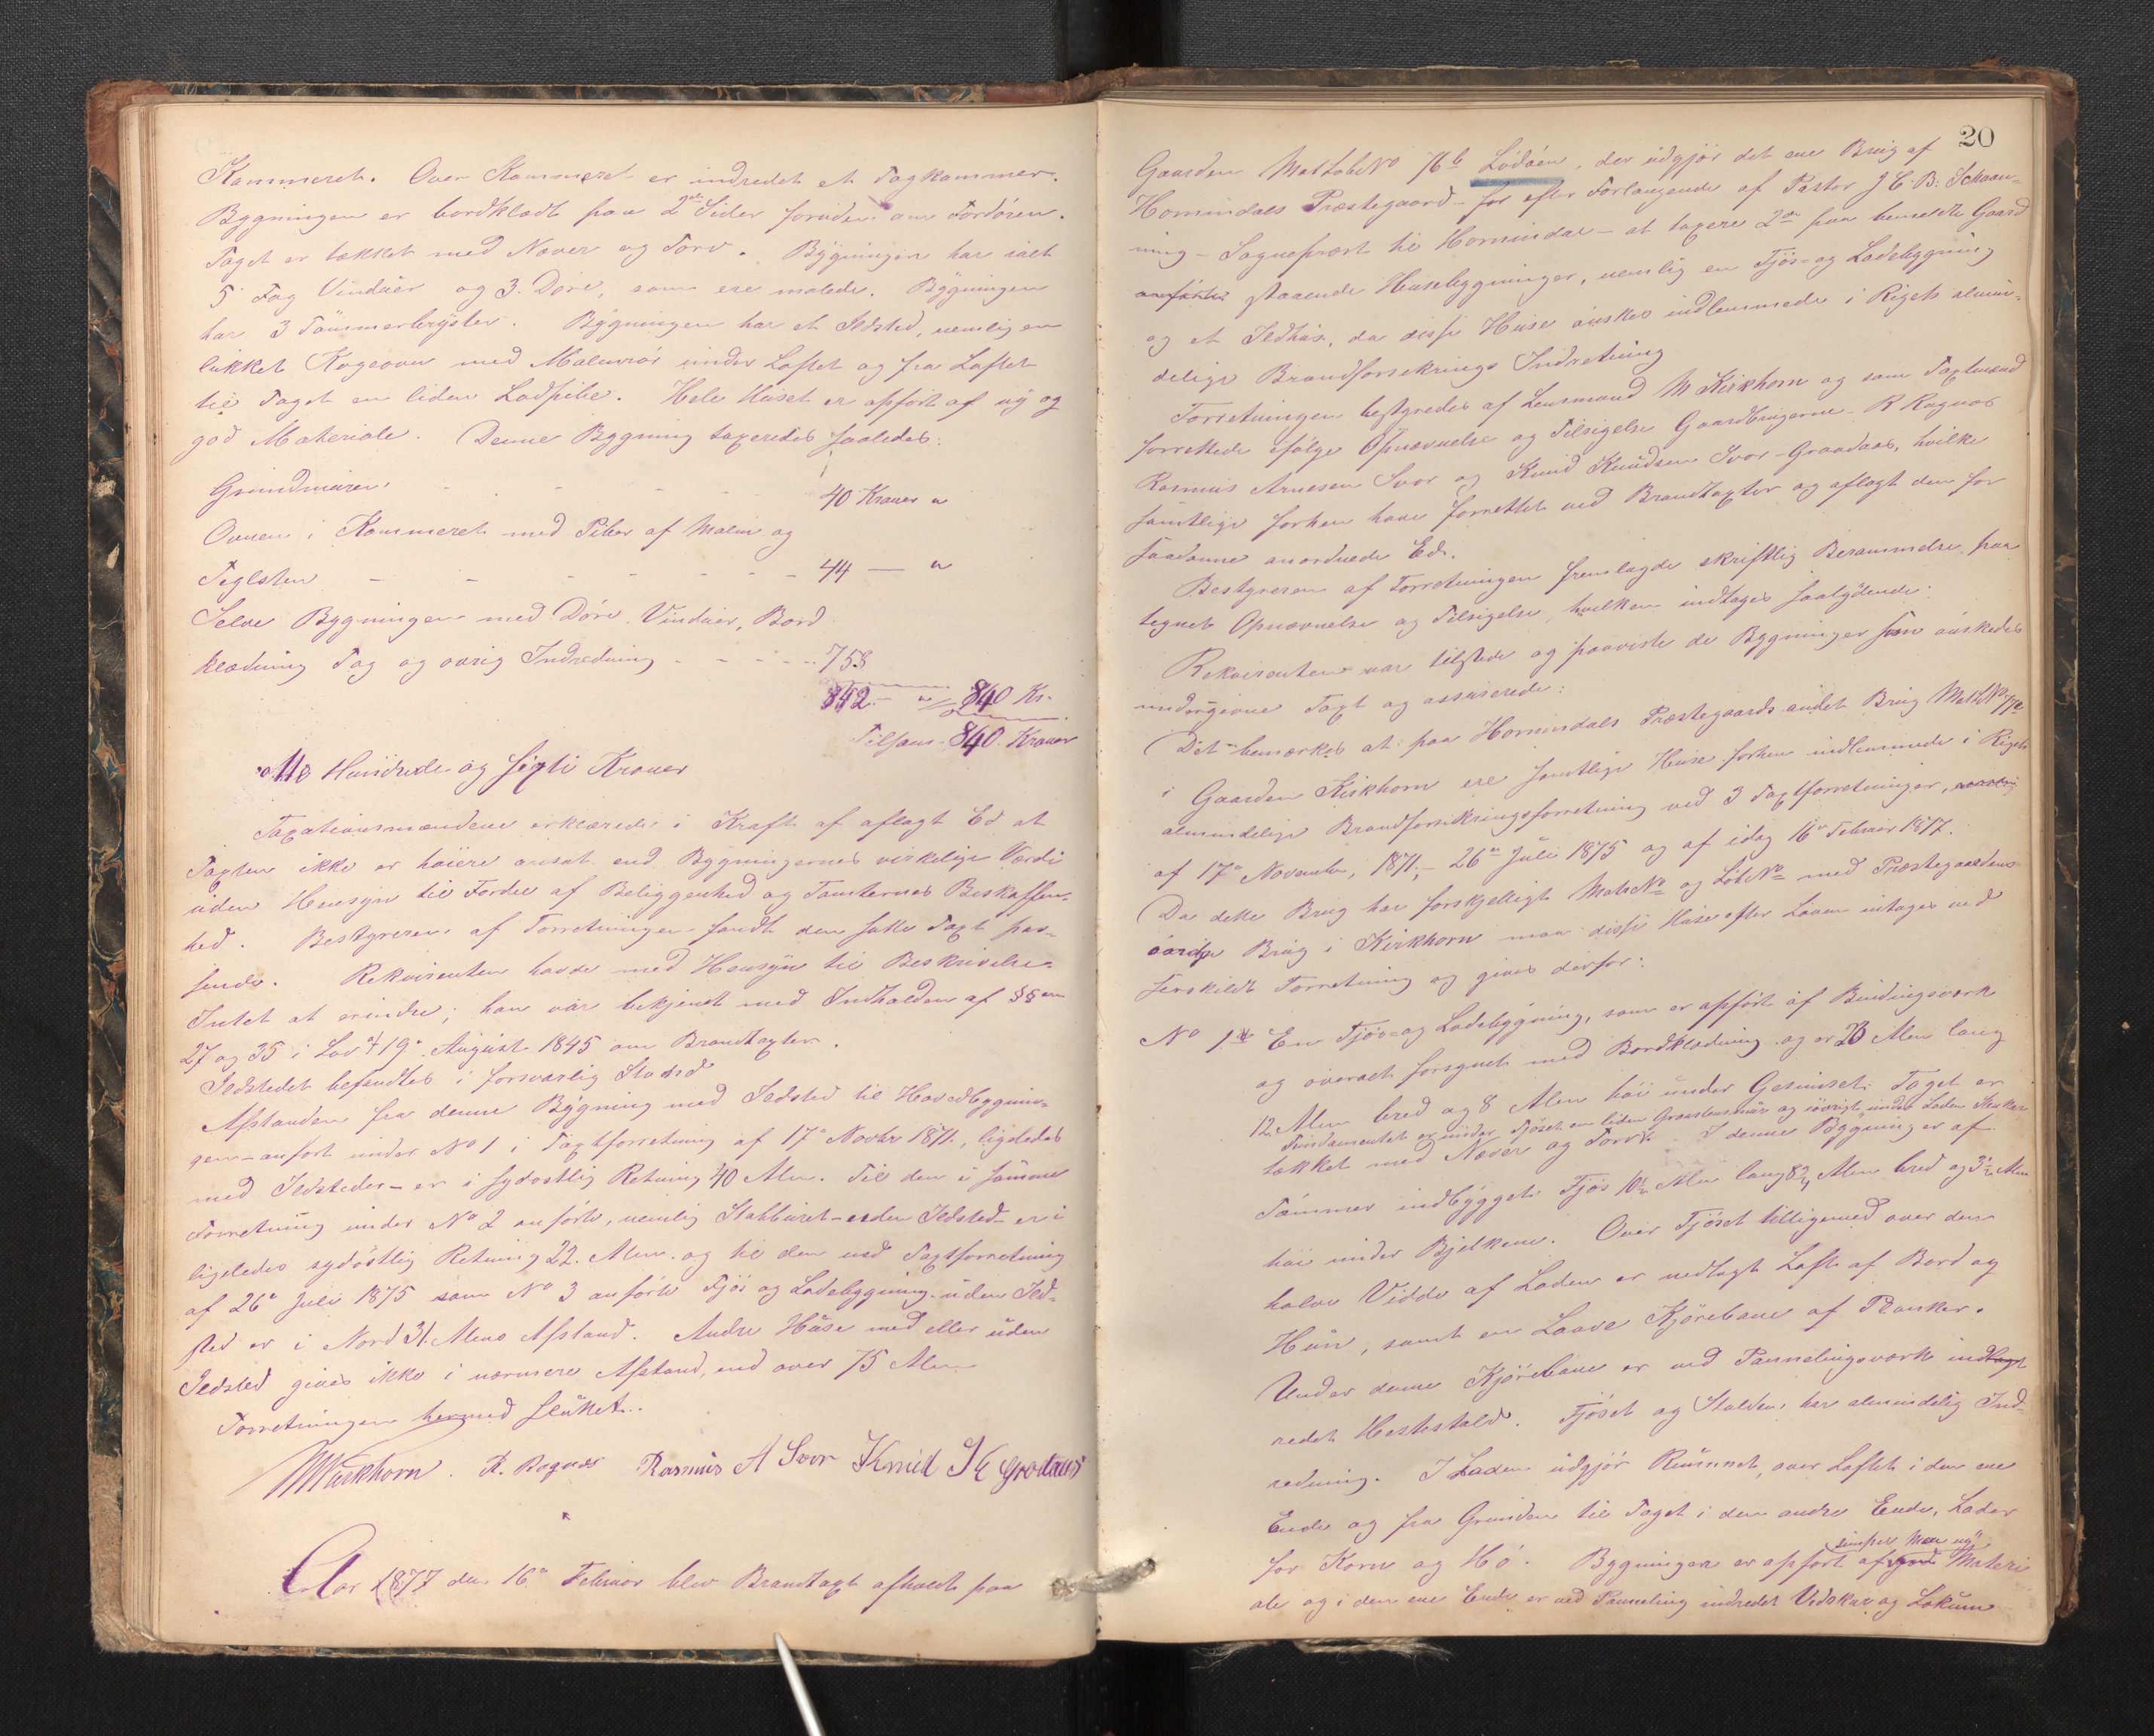 Kammeret. Over Kammeret er indredet et Tagkammer.
Bygningen er bordklædt paa 2de Sider foruden om Fordören.
Taget er tækket med Næver og Torv. Bygningen har ialt
5 Fag Vinduer og 3 Döre, som ere malede. Bygningen
har 3 Tömmerbryster. Bygningen har et Ildsted, nemlig en
lukket Kogeovn med Malmrör under Loftet og fra Loftet
til Taget en liden Lodpibe. Hele Huset er opfört af ny og
god Materiale. Denne Bygning taxeredes saaledes:
Grundmuren - - - - 40 Kroner "
Ovnen i Kammeret med Piber af Malm og
Teglsten - - - - - - - 44 — "
Selve Bygningen med Döre, Vinduer, Bord
klædning Tag og övrig Indredning - - - - - 758
842 - " 840 Kr.
Tilsam. 840. Kroner
otte Hundrede og firti Kroner
Taxationsmændene erklærede i Kraft af aflagt Ed at
Taxten ikke er höiere ansat end Bygningernes virkelige Værdi
uden Hensyn til Fordel af Beliggenhed og Tomternes Beskaffen-
hed. Bestyreren af Forretningen fandt den satte Taxt pas-
sende. Rekvirenten havde med Hensyn til Beskrivelsen
Intet at erindre; han var bekjendt med Indholden af §§erne
27 og 35 i Lov af 19de August 1845 om Brandtaxter.
Ildstedet befandtes i forsvarlig Stand
Afstanden fra denne Bygning med Ildsted til Hovedbygnin-
gen - anfört under No 1 i Taxtforretning af 17de Novbr 1871, ligeledes
med Ildsteder - er i sydostlig Retning 40 Alen. Til den i samme
Forretning under No 2 anförte, nemlig Stabburet - uden Ildsted - er i
ligeledes sydöstlig Retning 22 Alen. og til den ved Taxtforretning
af 26de Juli 1875 som No 3 anförte Fjös og Ladebygning uden Ild-
sted er i Nord 31 Alens Afstand. Andre Huse med eller uden
Ildsted gives ikke i nærmere Afstand, end over 75 Alen
Forretningen hermed sluttet.
MKirkhorn. R. Rognes Rasmus A Svor Knud K Grodaas
Aar 1877 den 16de Februar blev Brandtaxt afholdt paa
20
Gaarden Mat Löbe No 76b Lödöen, der udgjör det ene Brug af
Hornindals Præstegaard - for efter Forlangende af Pastor J. C. B. Schaan-
ning - Sognepræst til Hornindal - at taxere 2de paa bemeldte Gaard
anförte staaende Husebygninger, nemlig en Fjös- og Ladebygning
og et Ildhus, da disse Huse önskes indlemmede i Rigets almin-
delige Brandforsikrings Indretning
Forretningen bestyredes af Lensmand M Kirkhorn og som Taxtmænd
forrettede ifölge Opnævnelse og Tilsigelse Gaardbrugerne - R Rognes
Rasmus Arnesen Svor og Knud Knudsen Svor-Graadaas, hvilke
samtlige forhen have forrettet ved Brandtaxter og aflagt den for
saadanne anordnede Ed.
Bestyreren af Forretningen fremlagde skriftlig Berammelse paa
tegnet Opnævnelse og Tilsigelse, hvilken indtages saalydende:
Rekvirenten var tilstede og paaviste de Bygninger som önskedes
undergivne Taxt og assurerede:
Det bemærkes at paa Hornindals Præstegaards andet Brug Mat L No 77a
i Gaarden Kirkhorn ere samtlige Huse forhen indlemmede i Rigets
almindelige Brandforsikringsforretning ved 3 Taxtforretninger,
af 17de November 1871, - 26de Juli 1875 og af idag 16de Februar 1877.
Da dette Brug har forskjelligt Matr No og Löbe No med Præstegaardens
övrige Brug i Kirkhorn maa disse Huse efter Loven intages ved
særskildt Forretning og gives derfor:
No 1. En Fjös- og Ladebygning, som er opfört af Bindingsværk
og överalt forsynet med Bordklædning og er 23 Alen lang
12 Alen bred og 8 Alen höi under Gesimset. Taget er
Fundamentet er under Fjöset en liden Graastensmur og iövrigt under Laden Stolper
tækket med Næver og Torv. I denne Bygning er af
Tömmer indbygget Fjös 10½ Alen lang 8½ Alen bred og 3½ Alen
höi under Bjelkene. Over Fjöset tilligemed over den
halve Vidde af Laden er nedlagt Loft af Bord og
Hun, samt en Laave Kjörebane af Planker.
Under denne Kjörebane er ved Pannelingsværk ind
redet Hestestald. Fjöset og Stalden har almindelig Ind-
redning. I Laden udgjör Rummet, over Loftet i den ene
Ende og fra Grunden til Taget i den andre Ende, Lader
for Korn og Hö. Bygningen er opfört af simpel Men ny Materi
ale og i den ene Ende er ved Panneling indredet Vedskur og Lokum